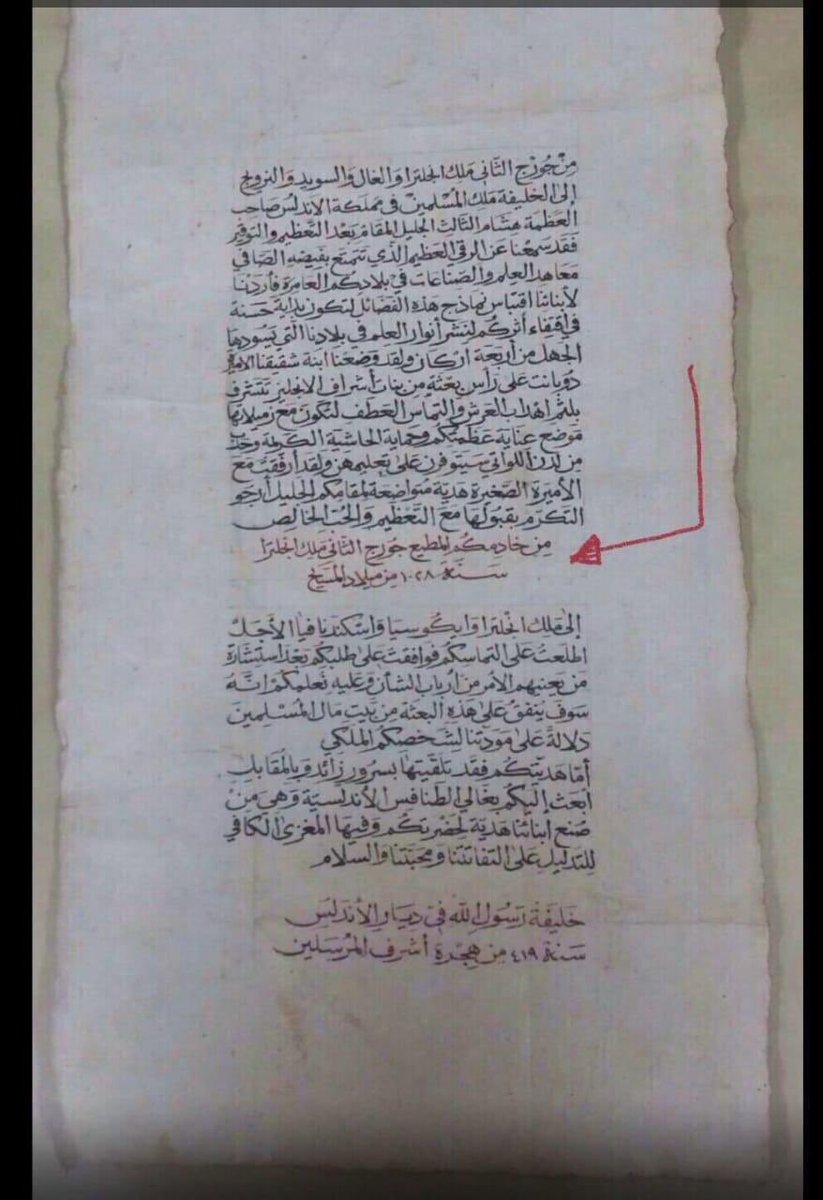 مِنْ جُورْج الثَّانى مَلك انجلترا وَالغال وَالسويد وَالنرويج
إلى الخليفة مَلك المُسْلمينْ فى مملكة الأندلسْ صَاحب
العَظمة هشام الثالث الجليل المقام بَعْد التَّعظيم والتوقير
فَقد سَمِعْنا عَن الرقى العَظيم الذى تتمتع بفَيضه الصَّافي
مَعَاهد العِلم وَالصّناعات في بلادكم العَامرة فأردْنا
لأبنائنا اقتباس نماذج هذه الفضائل لتكون بداية حَسنة
في اقتفاء أثركُم لنشر أنوار العلم في بلادنا التي يَسُودها
الجهل من أربعة أركان ولقد وَضعنا ابنة شقيقنا الأميرة
دُوبانت على رَأس بعْثة من بنات أشراف الإنجليز تتشرف
بلثم اهداب العَرش وَالتماس العَطف لتكون مع زميلاتها
مَوضع عناية عَظمتكم وحماية الحَاشية الكريمة وحدب
من لدن اللواتي سَيتوفرن على تعليمهن وَلقد أرفقت مع
الأميرة الصَّغيرة هَديَّة مُتواضعة لمقامكم الجليل أرجو
التكرم بقبُولها مَعَ التَّعْظيم وَالحُبّ الخالِص
مِن خادمكُم المطيع جُورْج الثَّانى مَلك انجلترا
سَنَة ١٠٢٨ مِن مِيلاد المَسِيح
إلىٰ مَلك انْجلترا وَايكُوسيَا وَاسكندنيافيا الأجَلّ
اطلعْتُ على التماسكُم فوافقت على طلبكُم بَعْد استشارة
من يَعنيهم الأمر من أرباب الشأن وَعليه نعْلمكُمْ انَّهُ
سَوفَ ينفقُ على هَذه البعثَة مِن بَيت مَال المُسْلِمينَ
دَلالةً عَلى مَودّتنا لشخصكُم المَلكي
أمَّا هَديتكُم فقد تلقيتهَا بسرُور زائد وَبالمُقابل
ابعَث إليكم بغَالي الطنافس الأندلسيَّة وَهىَ مِنْ
صُنع ابنائنا هَديّة لحضرتكُم وَفيهَا المغزىٰ الكافي
للتدليل عَلى التفاتتنا وَمحبَّتنا وَالسلام
خَليفة رَسُول الله في دِيَار الأندلس
سَنة ٤١٩ مِن هِجْرة أشرف المُرْسَلين